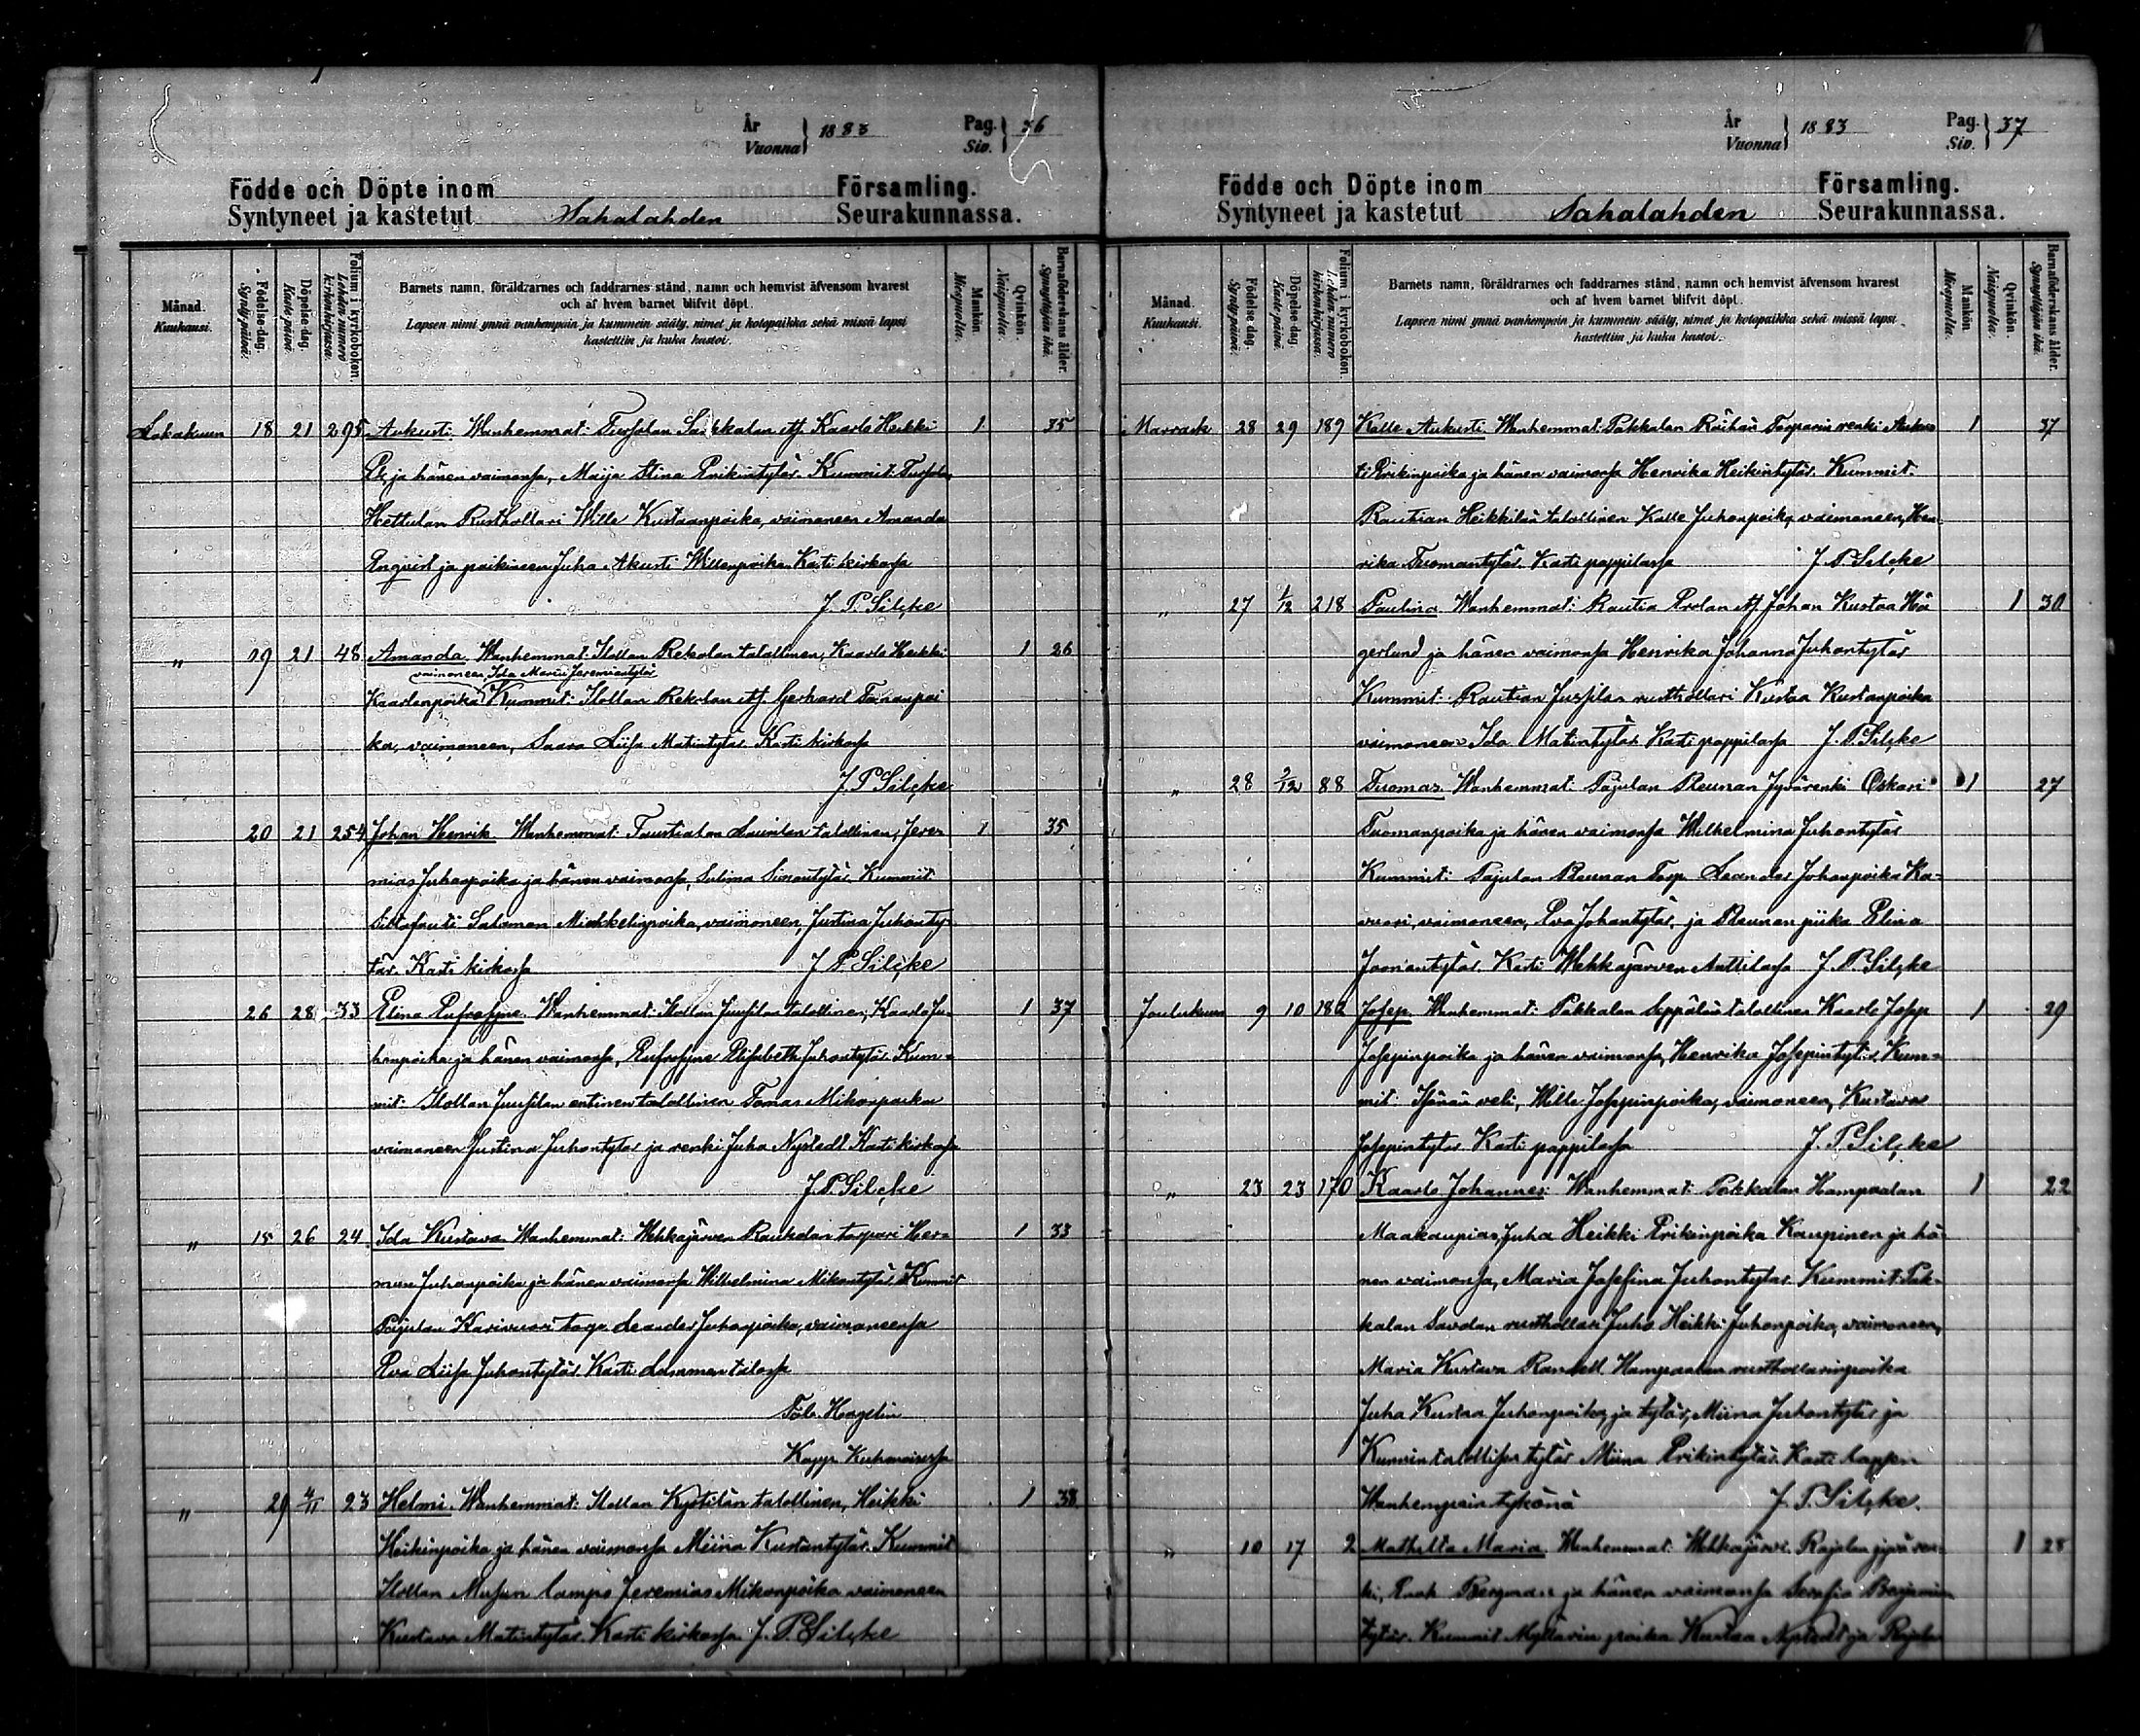 År
Vuonna } 1883 Pag.
Siv. } 36
Födde och Döpte inom Församling.
Syntyneet ja kastetut Sahalahden Seurakunnassa.
Månad. Kuukausi.
Födelse dag. Synty-päivä.
Döpelse dag. Kaste päivä.
Folium i kyrkobokon. Lehden numero kirkonkirjassa.
Barnets namn, föräldrarnes och faddrarnes stånd, namn och hemvist äfvensom hvarest
och af hvem barnet blifvit döpt.
Lapsen nimi ynnä vanhempain ja kummein sääty, nimet ja kotopaikka sekä missä lapsi
kastettiin ja kuka kastoi.
Mankön. Miespuolia.
Qvinkön. Naispuolia.
Barnaföderskans ålder. Synnyttäjän ikä.
Lokakuun 18 21 295 Aukusti Wanhemmat: Kaarle Heikki 1 35
ja hänen vaimonsa, Maija Stina Erikintytär. Kummit:
Hettulan Rusthollari Wille Kustaanpoika, vaimoneen Amanda
Enqvist ja poikineen Juha Akusti Willenpoika. Kasti kirkossa
J. P. Silcke
" 19 21 48 Amanda. Wanhemmat: Rekolan talollinen, Kaarle Heikki 1 26
vaimoneen Ida Maria Jeremiantytär
Kaarlenpoika Kummit: Rekolan Gerhard
ka, vaimoneen, Saara Liisa Matintytär. Kasti kirkossa
J. P. Silcke
20 21 254 Johan Henrik Wanhemmat: Laurilan talollinen, Jere- 1 35
mias Juhanpoika ja hänen vaimonsa, Selima Simontytär. Kummit:
Salamon Mikkelinpoika, vaimoneen, Justina Juhanty-
tär. Kasti kirkossa J. P. Silcke
26 28 33 Elina Eufrosyne. Wanhemmat: Juusilan talollinen, Kaarle Ju- 1 37
hanpoika ja hänen vaimonsa, Eufrosyne Elisabeth Juhontytär. Kum-
mit: Juusilan entinen talollinen Tomas Mikonpoika
vaimoneen Justina Juhontytär ja renki Juha Nystedt Kasti kirkossa
J. P. Silcke
" 15 26 24 Ida Kustava Wanhemmat: Wehkajärven Raukolan torpari Her- 1 33
man Juhanpoika ja hänen vaimonsa Wilhelmina Mikontytär. Kummit
Pajulan torp. Leander Juhanpoika, vaimoneensa
Eva Liisa Juhontytär. Kasti
Hagelin
Kapp. Kuhmoisessa
" 29 4/11 23 Helmi. Wanhemmat: Kyötilän talollinen, Heikki 1 38
Heikinpoika ja hänen vaimonsa Miina Kustantytär. Kummit
Jeremias Mikonpoika vaimoneen
Kustava Matintytär. Kasti kirkossa. J. P. Silcke
År
Vuonna } 1883 Pag.
Siv. } 37
Födde och Döpte inom Församling.
Syntyneet ja kastetut Sahalahden Seurakunnassa.
Månad. Kuukausi.
Födelse dag. Synty-päivä.
Döpelse dag. Kaste päivä.
Folium i kyrkobokon. Lehden numero kirkonkirjassa.
Barnets namn, föräldrarnes och faddrarnes stånd, namn och hemvist äfvensom hvarest
och af hvem barnet blifvit döpt.
Lapsen nimi ynnä vanhempain ja kummein sääty, nimet ja kotopaikka sekä missä lapsi
kastettiin ja kuka kastoi.
Mankön. Miespuolia.
Qvinkön. Naispuolia.
Barnaföderskans ålder. Synnyttäjän ikä.
Marrask 28 29 189 Kalle Aukusti Wanhemmat: Pakkalan Torparin renki Aukus- 1 37
ti Erikinpoika ja hänen vaimonsa Henrika Heikintytär. Kummit:
Rautian Heikkilän talollinen Kalle Juhonpoika, vaimoneen, Hen-
rika Tuomantytär. Kasti pappilassa J. P. Silcke
" 27 1/12 218 Paulina Wanhemmat: Rautia Johan Kustaa Hä- 1 30
gerlund ja hänen vaimonsa Henrika Johanna Juhontytär
Kummit: Rautian Jussilan rusthollari Kustaa Kustanpoika
vaimoneen Ida Matintytär. Kasti pappilassa J. P. Silcke
" 28 2/12 88 Tuomas Wanhemmat: Pajulan Reunan Jyvärenki Oskari 1 27
Tuomanpoika ja hänen vaimonsa Wilhelmina Juhontytär
Kummit: Pajulan Reunan Torp. Leander Johanpoika Ka-
vuori, vaimoneen, Eva Johantytär, ja Reunan piika Elina
Joonantytär. Kasti Wehkajärven Anttilassa J. P. Silcke
Joulukuun 9 10 182 Josep. Wanhemmat: Pakkalan Seppälän talollinen Kaarle Josep 1 29
Josepinpoika ja hänen vaimonsa, Henrika Josepintytär. Kum-
mit: Isännän veli, Wille Josepinpoika, vaimoneen, Kustava
Josepintytär. Kasti pappilassa J. P. Silcke
" 23 23 170 Kaarlo Johannes: Wanhemmat: Pakkalan Hampoalan 1 22
Maakaupias, Juha Heikki Erikinpoika Kaupinen ja hä-
nen vaimonsa, Maria Josefina Juhontytär. Kummit: Pak-
kalan Savolan rusthollari Juho Heikki Juhonpoika, vaimoneen,
Maria Kustava Randell Hampoalan rusthollarinpoika
Juha Kustaa Juhonpoika, ja tytär, Miina Juhontytär ja
talollisen tytär Miina Erikintytär. Kasti lapsen
Wanhempain tykönä J. P. Silcke.
" 10 17 2 Mathilta Maria. Wanhemmat: Wehkajärvi Rajalan jyvären- 1 28
ki, Enok Bergman ja hänen vaimonsa Serafia Benjamin
tytär. Kummit Myllärin poika Kustaa Nystedt ja Rajalan